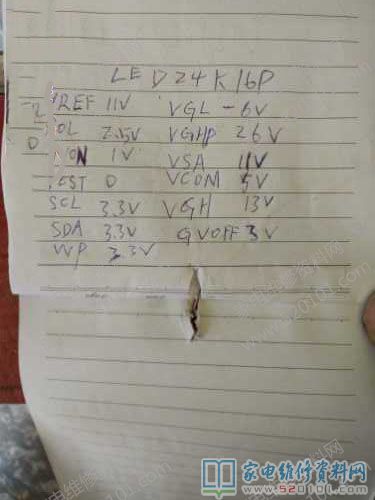 LED24K16P
VREF 11V VGL -6V
VGHP 26V
1V VSA 11V
0 VCOM 5V
SCL 3.3V VGH 13V
SDA 3.3V GVOFF 3V
WP 3.3V
家电维修资料网
www.520101.com